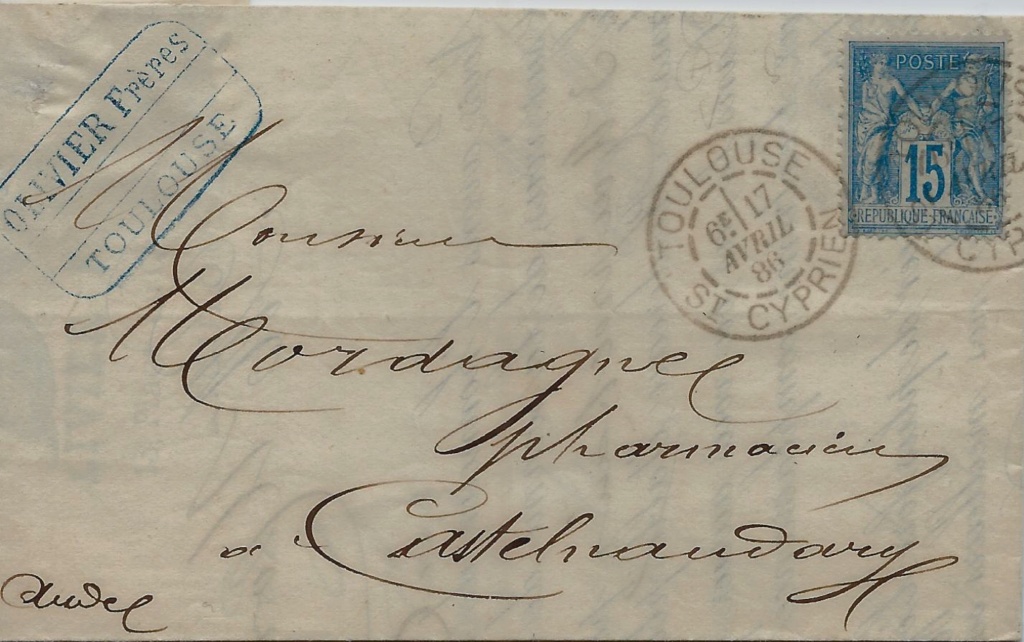 OLIVIER Frères
TOULOUSE
POSTE
15
RÉPUBLIQUE FRANÇAISE
TOULOUSE
6E 17
AVRIL
86
ST CYPRIEN
CYPR
Monsieur
Mordagne
pharmacien
a Castelnaudary
Aude